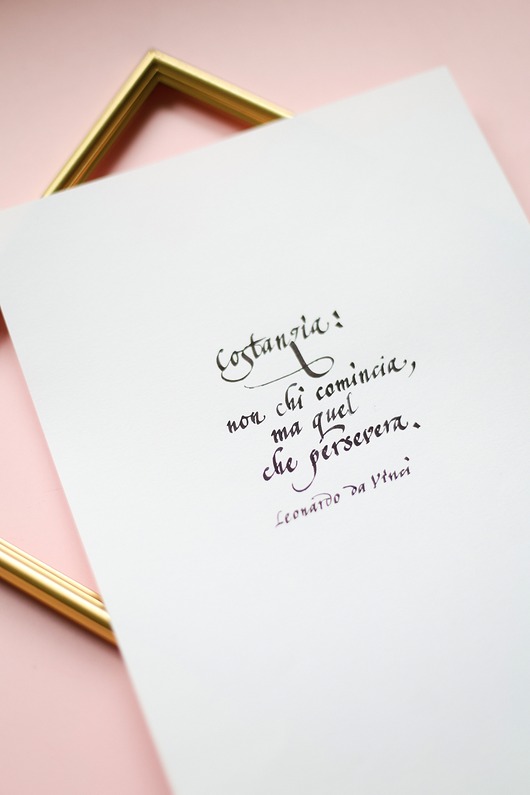 Costanzia:
non chi comincia,
ma quel
che persevera.
Leonardo da Vinci